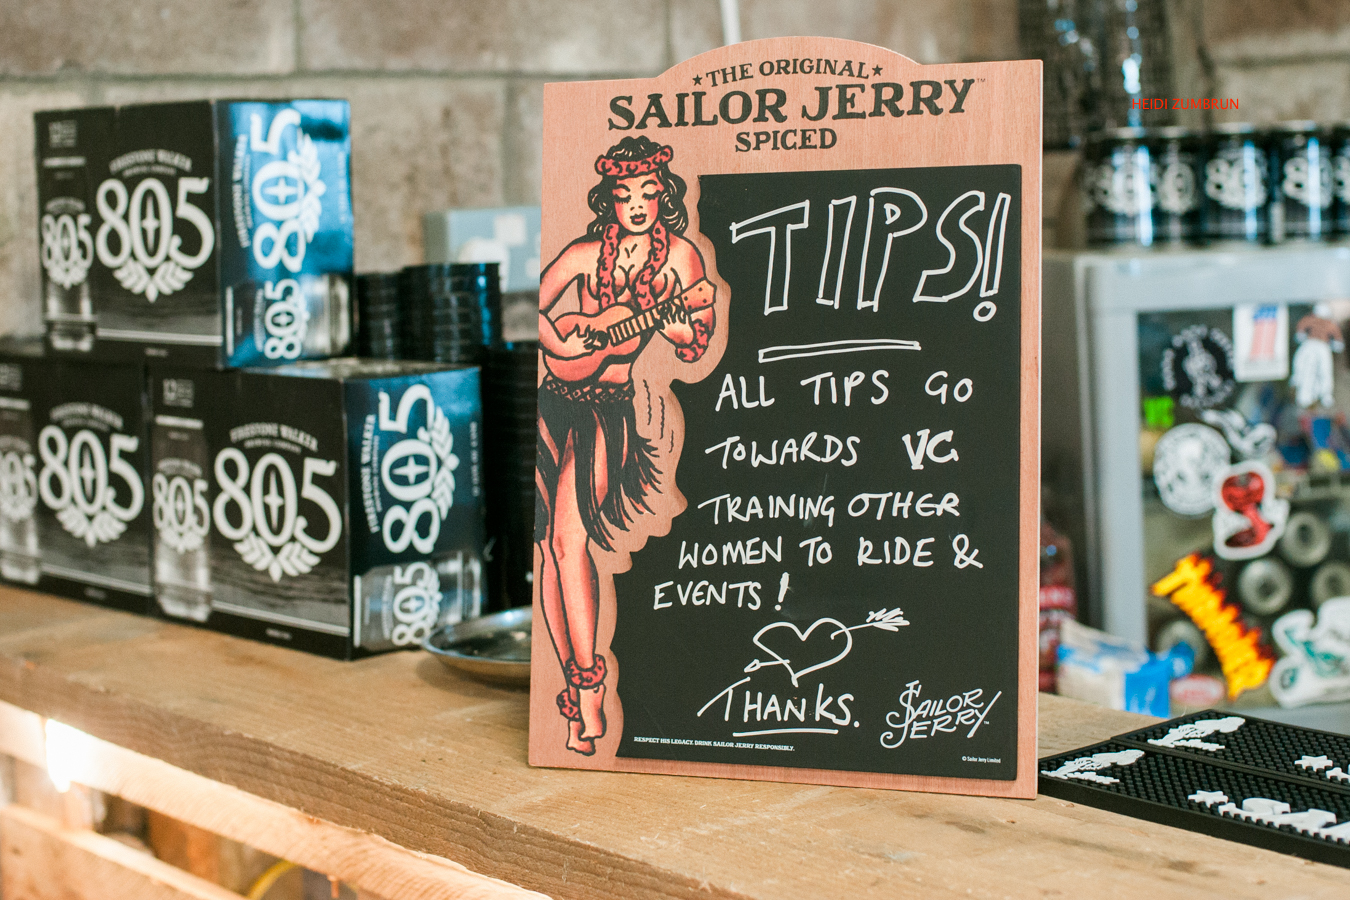 THE ORIGINAL
SAILOR JERRY™
SPICED
TIPS!
ALL TIPS GO
TOWARDS VC
TRAINING OTHER
WOMEN TO RIDE &
EVENTS!
THANKS.
SAILOR
JERRY™
RESPECT HIS LEGACY. DRINK SAILOR JERRY RESPONSIBLY.
© Sailor Jerry Limited
HEIDI ZUMBRUN
FIRESTONE WALKER
805
805
805
805
805
FIRESTONE WALKER
805
FIRESTONE WALKER
805
805
805
805